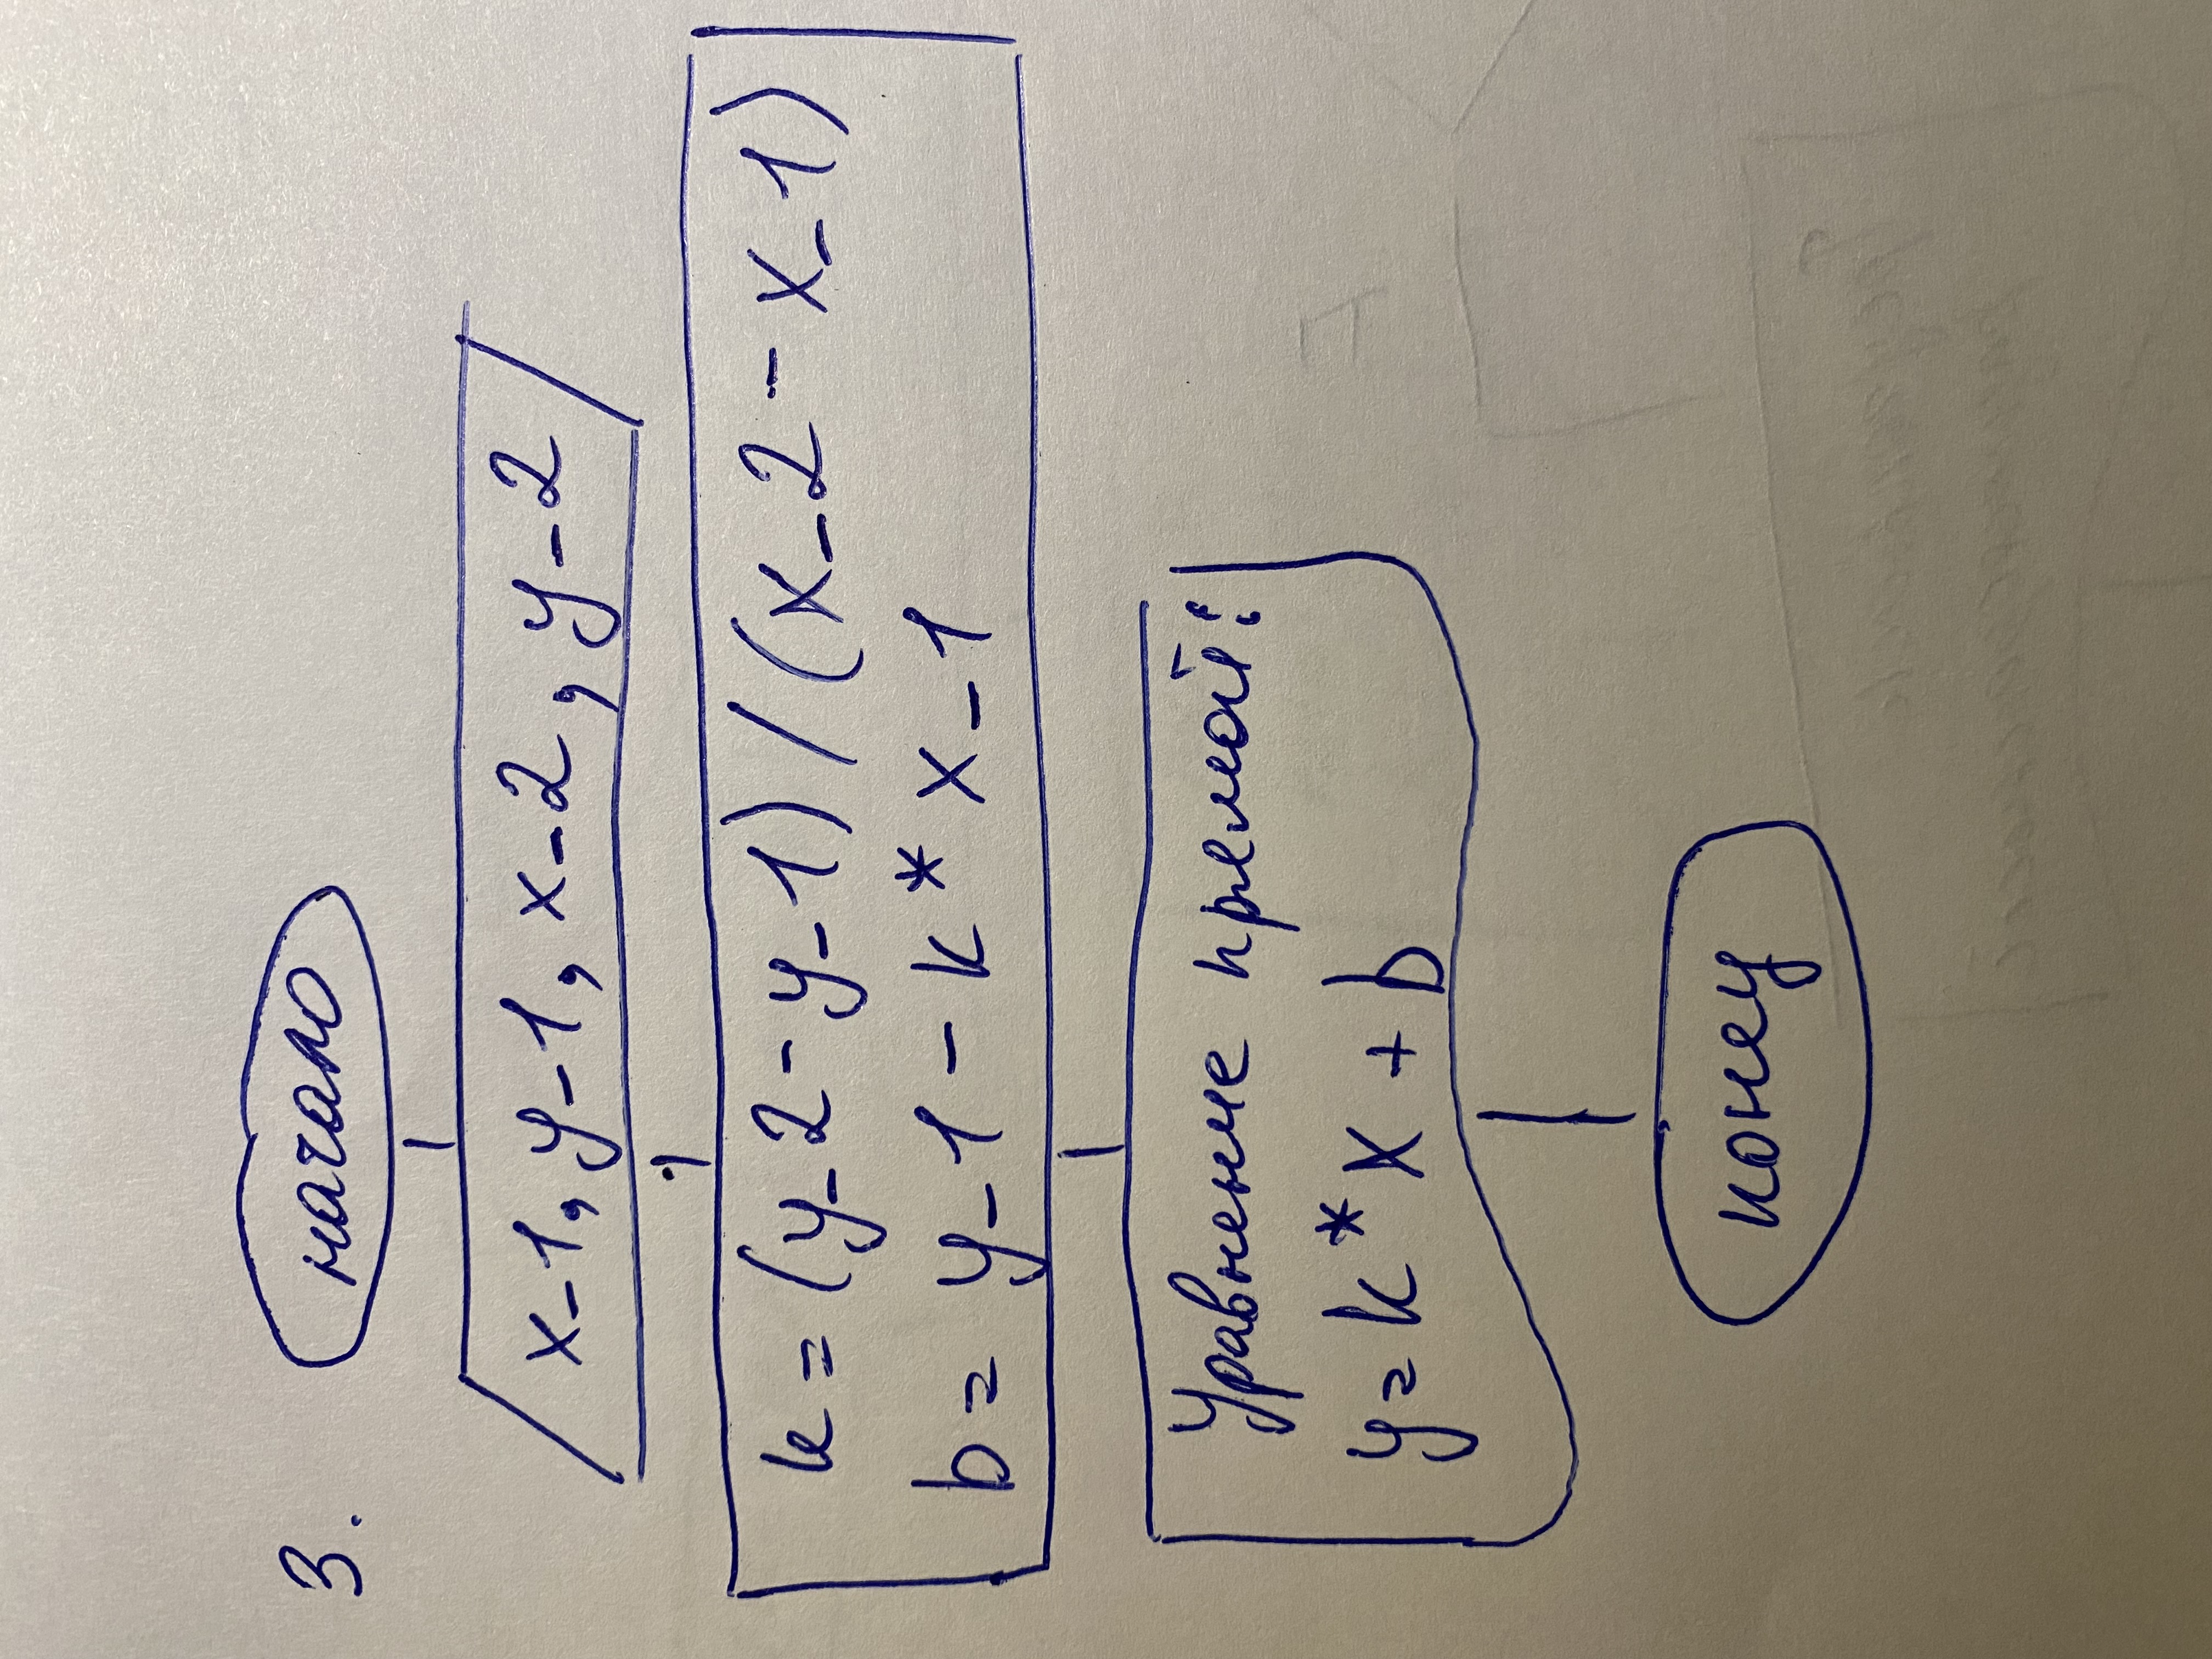 3. начало
x_1, y_1, x_2, y_2
k = (y_2 - y_1) / (x_2 - x_1)
b = y_1 - k * x_1
Уравнение прямой:
y = k * x + b
конец